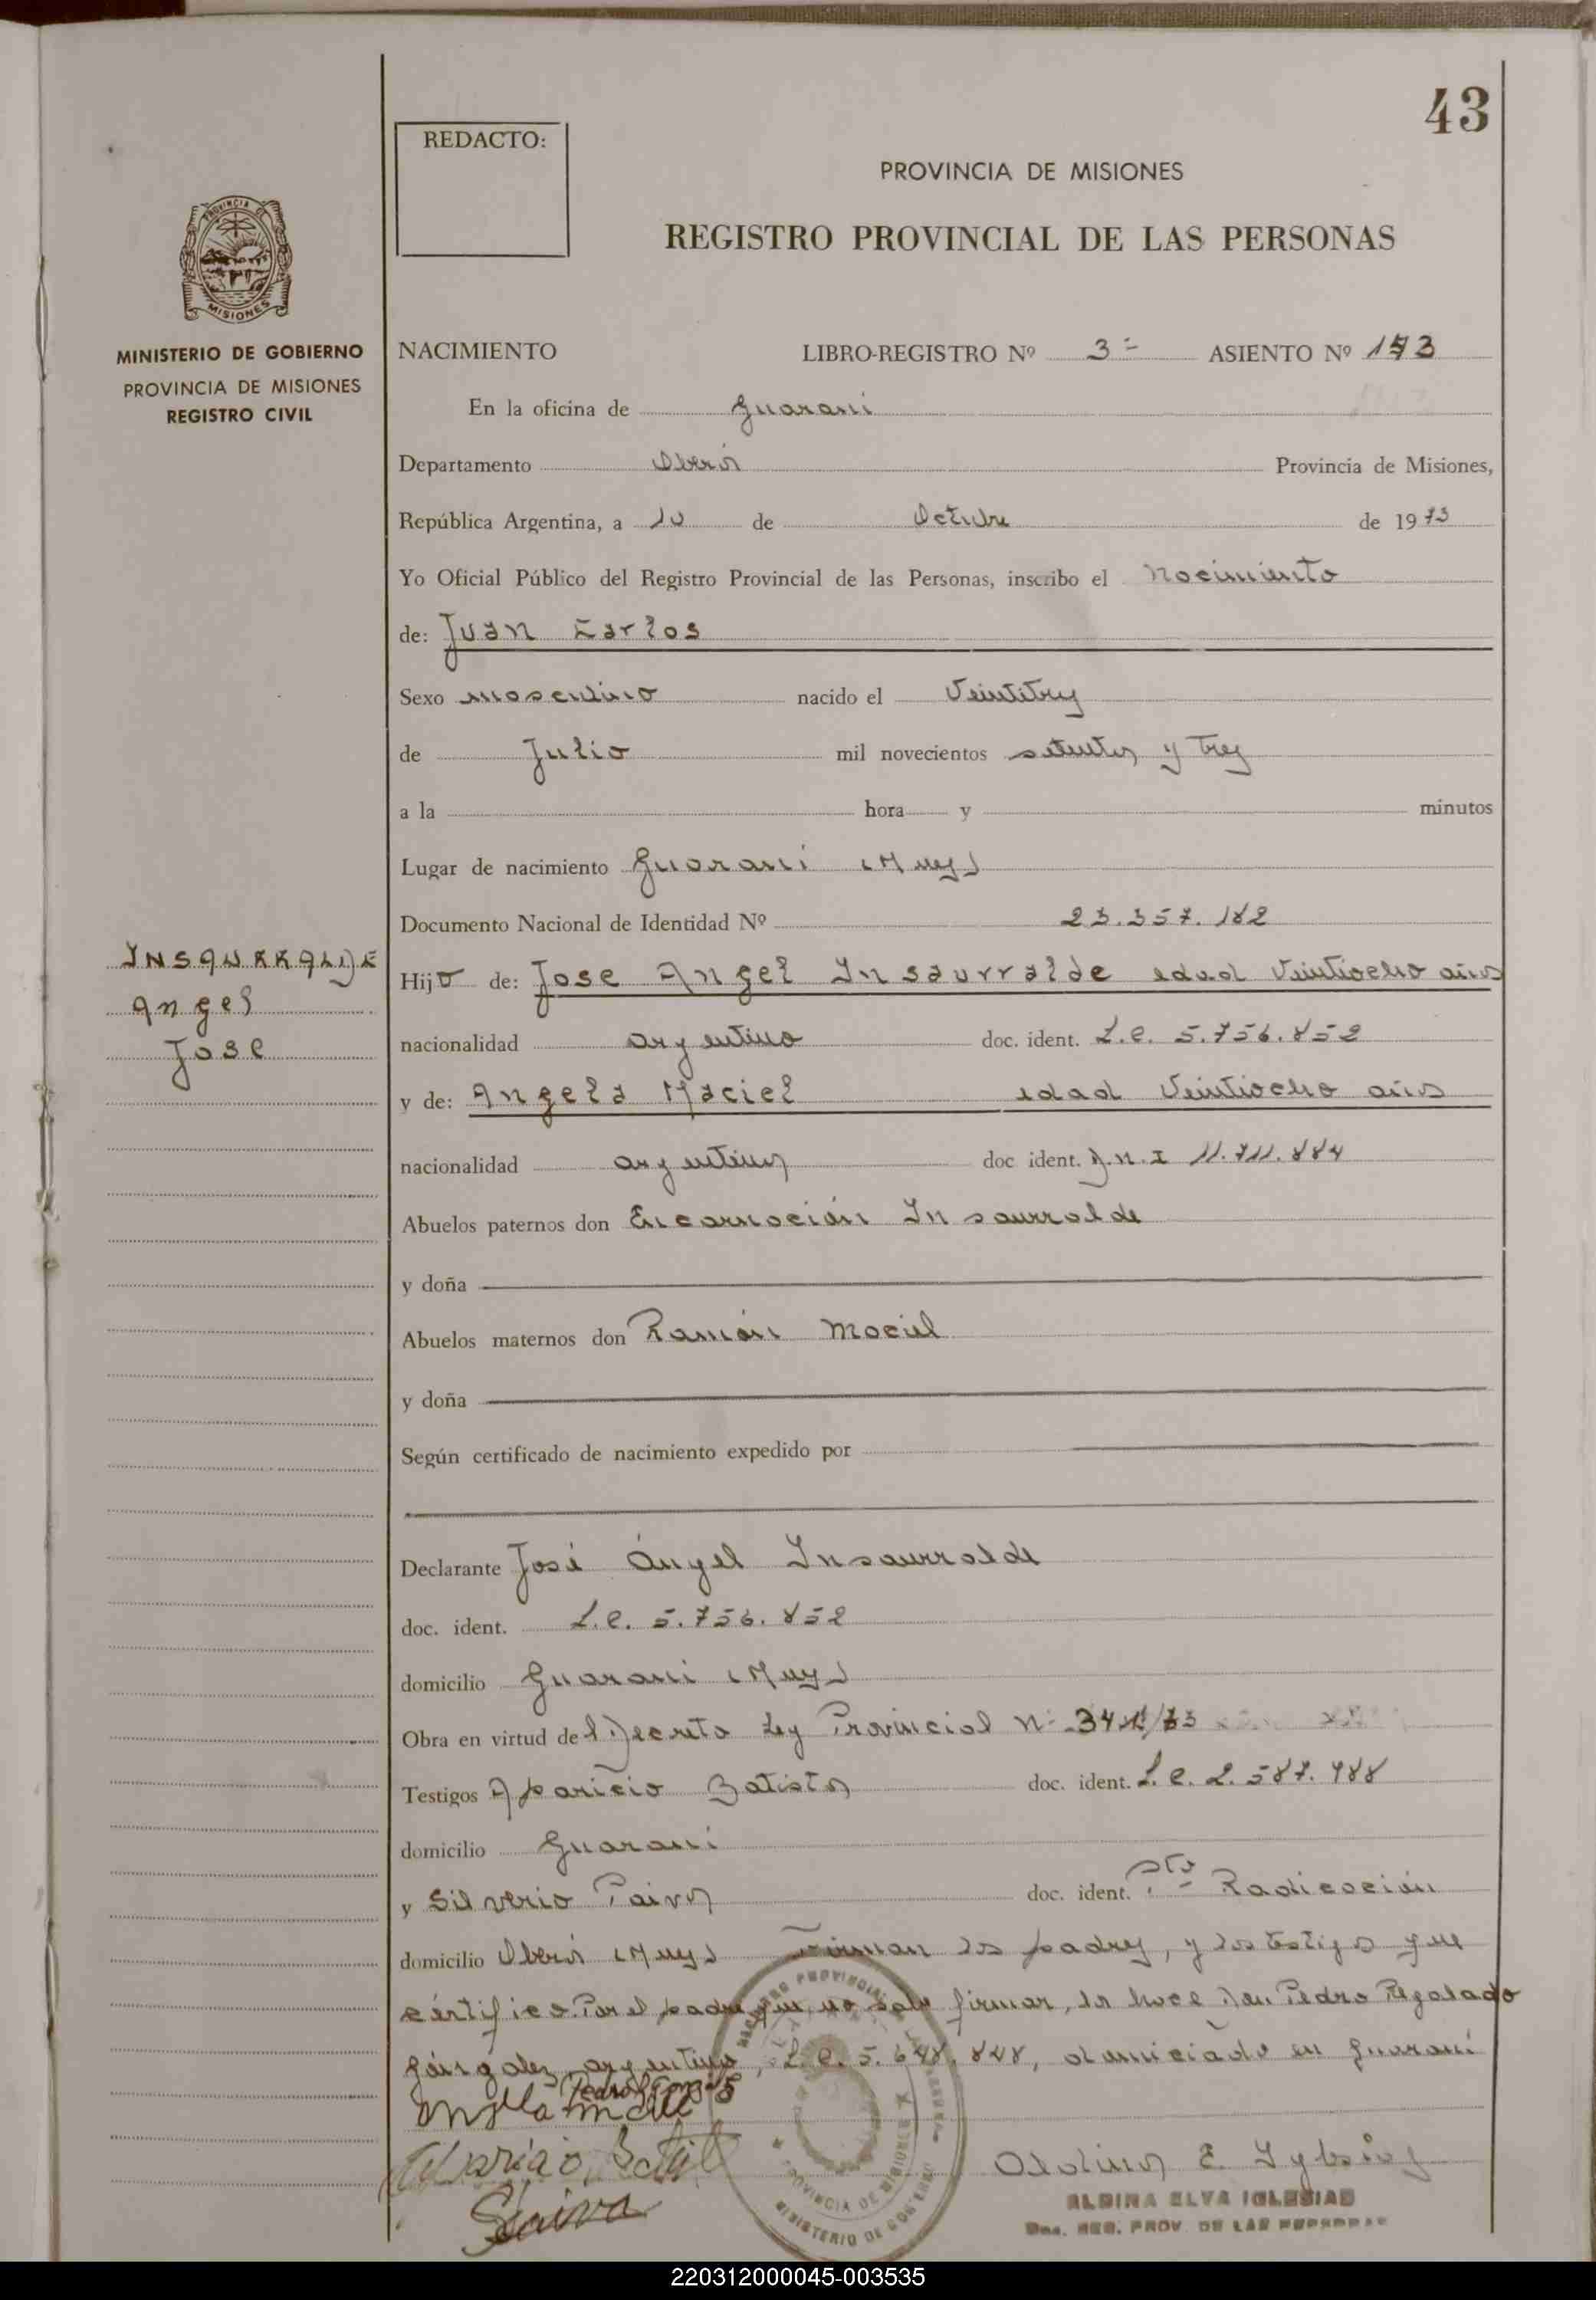 43
REDACTO:
PROVINCIA DE MISIONES
REGISTRO PROVINCIAL DE LAS PERSONAS
PROVINCIA DE
MISIONES
MINISTERIO DE GOBIERNO
PROVINCIA DE MISIONES
REGISTRO CIVIL
NACIMIENTO LIBRO-REGISTRO Nº 3º ASIENTO Nº 173
En la oficina de Guaraní
Departamento Oberá Provincia de Misiones,
República Argentina, a 10 de Octubre de 1973
Yo Oficial Público del Registro Provincial de las Personas, inscribo el Nacimiento
de: Juan Carlos
Sexo masculino nacido el Veintitrés
de Julio mil novecientos setenta y tres
a la hora y minutos
Lugar de nacimiento Guaraní (Mnes)
Documento Nacional de Identidad Nº 23.357.182
INSAURRALDE
Angel
Jose
Hijo de: Jose Angel Insaurralde edad Veintiocho años
nacionalidad argentino doc. ident. L.E. 5.756.852
y de: Angela Maciel edad Veintiocho años
nacionalidad argentina doc ident. D.N.I 11.711.884
Abuelos paternos don Encarnación Insaurralde
y doña
Abuelos maternos don Ramón Maciel
y doña
Según certificado de nacimiento expedido por
Declarante José Ángel Insaurralde
doc. ident. L.E. 5.756.852
domicilio Guaraní (Mnes)
Obra en virtud del Decreto Ley Provincial Nº
Testigos Aparicio Batista doc. ident. L.E. 2.587.988
domicilio Guaraní
y Silverio Paiva doc. ident. Radicación
domicilio Oberá (Mnes) Firman los padres, y los testigos que
certifico. Por el padre que no sabe firmar, lo hace Don Pedro Regalado
Gonzalez, argentino, L.E. 5.648.848, domiciliado en Guaraní
REGISTRO PROVINCIAL DE LAS PERSONAS
PROVINCIA DE MISIONES
MINISTERIO DE GOBIERNO
Aldina E. Iglesias
ALDINA ELVA IGLESIAS
REG. PROV. DE LAS PERSONAS
220312000045-003535